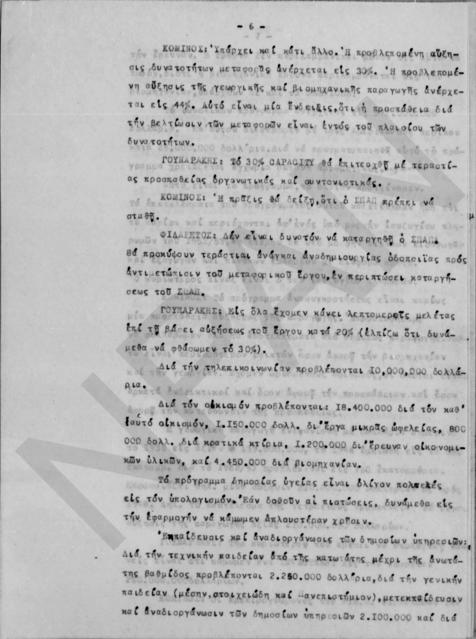 - 6 -
ΚΟΜΙΝΟΣ: Ὑπάρχει καί κάτι ἄλλο. Ἡ προβλεπομένη αὔξη-
σις δυνατοτήτων μεταφορᾶς ἀνέρχεται εἰς 30%. Ἡ προβλεπομέ-
νη αὔξησις τῆς γεωργικῆς καί βιομηχανικῆς παραγωγῆς ἀνέρχε-
ται εἰς 44%. Αὐτό εἶναι μία ἔνδειξις, ὅτι ἡ προσπάθεια διά
τήν βελτίωσιν τῶν μεταφορῶν εἶναι ἐντός τοῦ πλαισίου τῶν
δυνατοτήτων.
ΓΟΥΝΑΡΑΚΗΣ: Τό 30% CAPACITY θά ἐπιτευχθῇ μέ τεραστί-
ας προσπαθείας ὀργανωτικάς καί συντονιστικάς.
ΚΟΜΙΝΟΣ: Ἡ πρᾶξις θά δείξῃ, ὅτι ὁ ΣΠΑΠ πρέπει νά
σταθῇ.
ΦΙΛΑΡΕΤΟΣ: Δέν εἶναι δυνατόν νά καταργηθῇ ὁ ΣΠΑΠ.
Θά προκύψουν τεράστιαι ἀνάγκαι ἀναδημιουργίας ὁδοποιΐας πρός
ἀντιμετώπισιν τοῦ μεταφορικοῦ ἔργου, ἐν περιπτώσει καταργή-
σεως τοῦ ΣΠΑΠ.
ΓΟΥΝΑΡΑΚΗΣ: Εἰς ὅλα ἔχομεν κάνει λεπτομερεῖς μελέτας
ἐπί τῇ βάσει αὐξήσεως τοῦ ἔργου κατά 20% (ἐλπίζω ὅτι δυνά-
μεθα νά φθάσωμεν τό 30%).
Διά τήν τηλεπικοινωνίαν προβλέπονται 10,000,000 δολλά-
ρια.
Διά τόν οἰκισμόν προβλέπονται: 18.400.000 διά τόν καθ'
ἑαυτό οἰκισμόν, 1.150.000 δολλ. δι' ἔργα μικρᾶς ὠφελείας, 800
000 δολλ. διά κρατικά κτίρια, 1.200.000 δι' ἔρευναν οἰκονομι-
κῶν ὑλικῶν, καί 4.450.000 διά βιομηχανίαν.
Τό πρόγραμμα δημοσίας ὑγείας εἶναι ὀλίγον πολυτελές
εἰς τόν ὑπολογισμόν. Ἐάν δοθοῦν αἱ πιστώσεις, δυνάμεθα εἰς
τήν ἐφαρμογήν νά κάμωμεν ἁπλουστέραν χρῆσιν.
Ἐκπαίδευσις καί ἀναδιοργάνωσις τῶν δημοσίων ὑπηρεσιῶν:
Διά τήν τεχνικήν παιδείαν ἀπό τῆς κατωτάτης μέχρι τῆς ἀνωτά-
της βαθμῖδος προβλέπονται 2.250.000 δολλάρια, διά τήν γενικήν
παιδείαν (μέσην, στοιχειώδη καί πανεπιστήμιον), μετεκπαίδευσιν
καί ἀναδιοργάνωσιν τῶν δημοσίων ὑπηρεσιῶν 2.100.000 καί διά